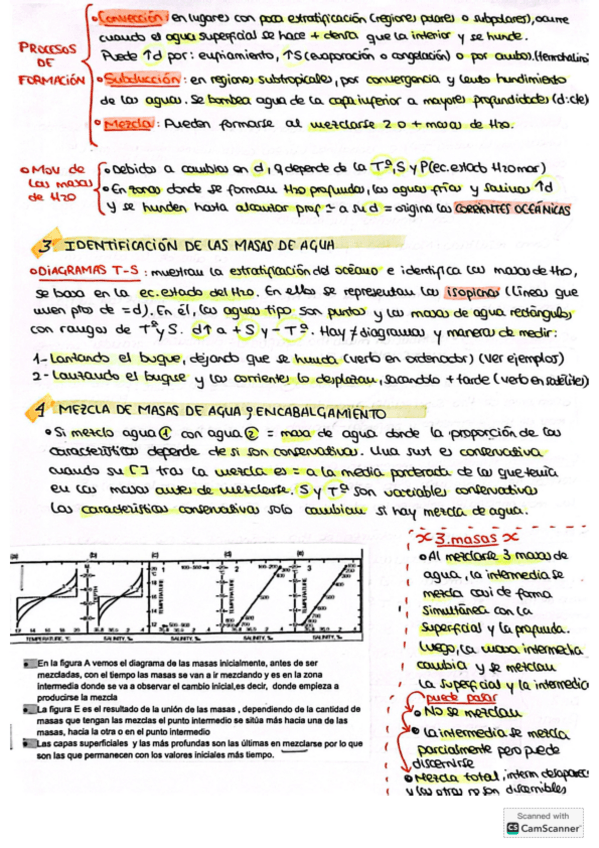 PROCESOS DE FORMACIÓN
• Convección: en lugares con poca estratificación (regiones polares o subpolares), ocurre
cuando el agua superficial se hace + densa que la interior y se hunde.
Puede ↑d por: enfriamiento, ↑S (evaporación o congelación) o por ambos. (termohalino)
• Subducción: en regiones subtropicales, por convergencia y lento hundimiento
de las aguas. Se bombea agua de la capa inferior a mayores profundidades (d:cte)
• Mezcla: Pueden formarse al mezclarse 2 o + masas de H2O.
• MOV de las masas de H2O
• Debidos a cambios en d, q depende de la Tª, S y P (ec. estado H2O mar)
• En zonas donde se forman H2O profundas, las aguas frías y salinas ↑d
y se hunden hasta alcanzar prof = a su d = origina las CORRIENTES OCEÁNICAS
3 IDENTIFICACIÓN DE LAS MASAS DE AGUA
• DIAGRAMAS T-S: muestran la estratificación del océano e identifica las masas de H2O,
se basa en la ec. estado del H2O. En ellos se representan las isopicnas (líneas que
unen ptos de = d). En él, las aguas tipo son puntos y las masas de agua rectángulos
con rangos de Tª y S. d↑ a + S y - Tª. Hay ≠ diagramas y maneras de medir:
1- Lanzando el buque, dejando que se hunda (verlo en ordenador) (ver ejemplos)
2- Lanzando el buque y las corrientes lo desplazan, sacándolo + tarde (verlo en satélites)
4 MEZCLA DE MASAS DE AGUA Y ENCABALGAMIENTO
• Si mezclo agua 1 con agua 2 = masa de agua donde la proporción de las
características depende de si son conservativas. Una sust es conservativa
cuando su [ ] tras la mezcla es = a la media ponderada de las que tenía
en las masas antes de mezclarse. S y Tª son variables conservativas
Las características conservativas solo cambian si hay mezcla de agua.
(a) (b) (c) (d) (e)
1 2 3
TEMPERATURE, °C
SALINITY, ‰
SALINITY, ‰
SALINITY, ‰
SALINITY, ‰
En la figura A vemos el diagrama de las masas inicialmente, antes de ser
mezcladas, con el tiempo las masas se van a ir mezclando y es en la zona
intermedia donde se va a observar el cambio inicial,es decir, donde empieza a
producirse la mezcla
La figura E es el resultado de la unión de las masas , dependiendo de la cantidad de
masas que tengan las mezclas el punto intermedio se sitúa más hacia una de las
masas, hacia la otra o en el punto intermedio
Las capas superficiales y las más profundas son las últimas en mezclarse por lo que
son las que permanecen con los valores iniciales más tiempo.
x 3.masas x
• Al mezclarse 3 masas de
agua, la intermedia se
mezcla casi de forma
simultánea con la
superficial y la profunda.
Luego, la masa intermedia
cambia y se mezclan
la superficial y la intermedia
puede pasar
• No se mezclan
• la intermedia se mezcla
parcialmente pero puede
discernirse
• Mezcla total, interm desaparece
y las otras no son discernibles
Scanned with
CS CamScanner